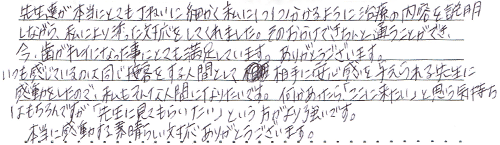 先生達が本当にとてもていねいに細かく私に1つ1つ分かるように治療の内容を説明
しながら、私により添った対応をしてくれました。そのおかげできちんと通うことができ、
今、歯がキレイになった事にとても満足しています。ありがとうございます。
いつも感じているのは同じ接客をする人間として 相手に安心感を与えられる先生に
感動をしたので、私もそんな人間になりたいです。何かあったら「ここに来たい」と思う気持ち
はもちろんですが「先生に見てもらいたい」という方がより強いです。
本当に感動する素晴らしい対応ありがとうございます。